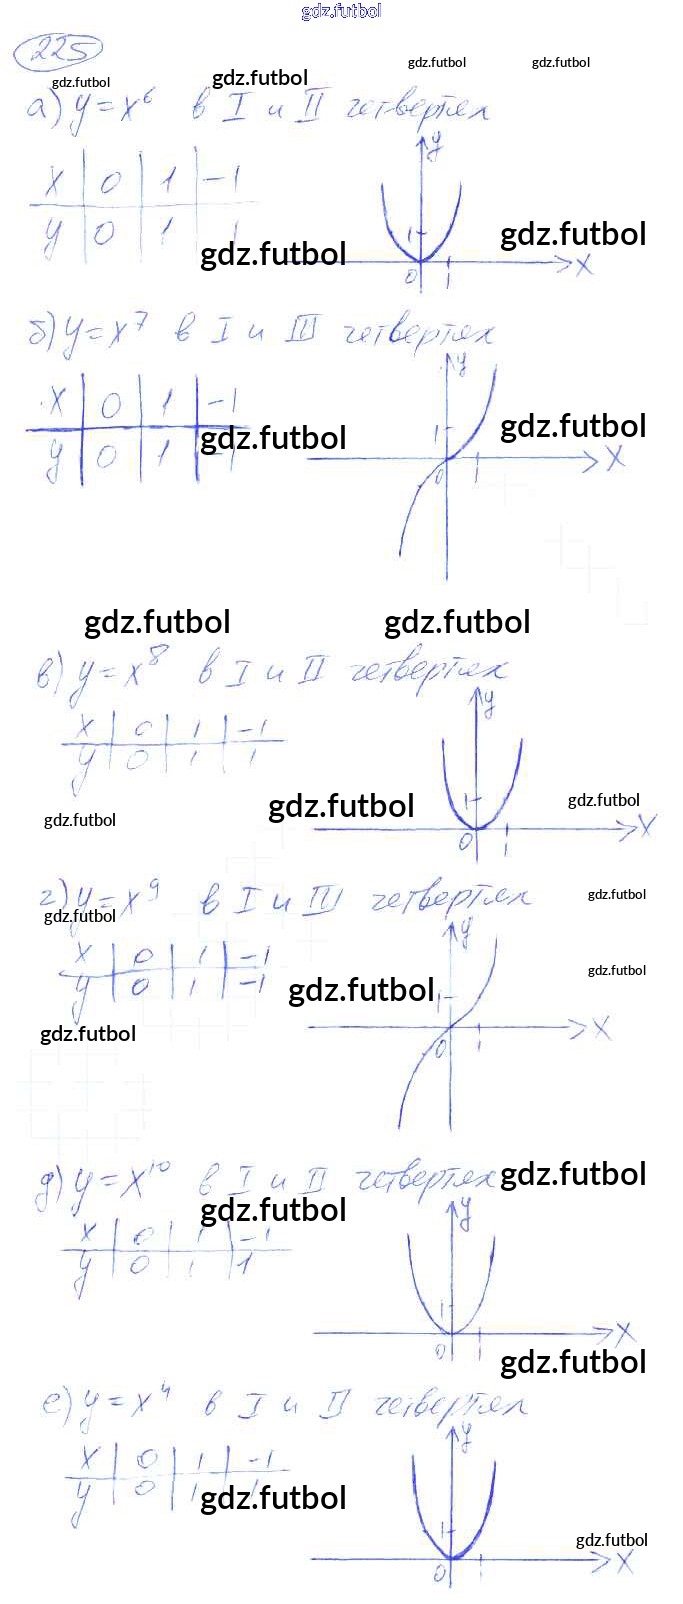 gdz.futbol
225
gdz.futbol gdz.futbol gdz.futbol gdz.futbol
а) y = x⁶ в I и II четвертях
x | 0 | 1 | -1
y | 0 | 1 | 1
y
1
0 1 x
gdz.futbol gdz.futbol
б) y = x⁷ в I и III четвертях
x | 0 | 1 | -1
y | 0 | 1 | -1
y
1
0 1 x
gdz.futbol gdz.futbol
gdz.futbol gdz.futbol
в) y = x⁸ в I и II четвертях
x | 0 | 1 | -1
y | 0 | 1 | 1
y
1
0 1 x
gdz.futbol gdz.futbol gdz.futbol
г) y = x⁹ в I и III четвертях
gdz.futbol gdz.futbol
x | 0 | 1 | -1
y | 0 | 1 | -1
y
1
0 1 x
gdz.futbol gdz.futbol
gdz.futbol
д) y = x¹⁰ в I и II четвертях
gdz.futbol gdz.futbol
x | 0 | 1 | -1
y | 0 | 1 | 1
y
1
0 1 x
gdz.futbol
е) y = x⁴ в I и II четвертях
x | 0 | 1 | -1
y | 0 | 1 | 1
y
1
0 x
gdz.futbol gdz.futbol